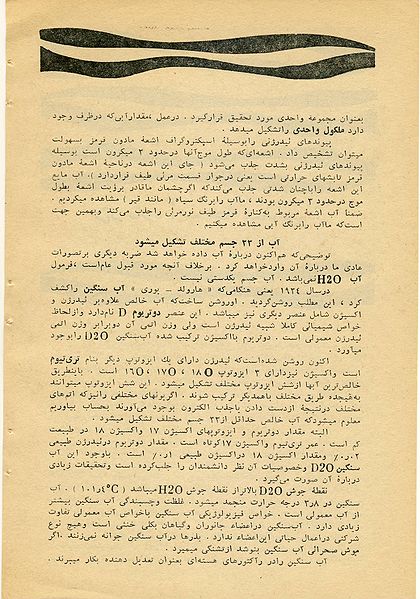 بعنوان مجموعه واحدی مورد تحقیق قرارگیرد . درعمل ،مقدارآبی‌که درظرف وجود
دارد ملکول واحدی راتشکیل میدهد .
پیوندهای ئیدرژنی رابوسیلهٔ اسپکتروگراف اشعهٔ مادون قرمز بسهولت
میتوان تشخیص داد . اشعه‌ای‌که طول موج‌آنها درحدود ۳ میکرون است بوسیله
پیوندهای ئیدرژنی بشدت جذب می‌شود ( جای این اشعه درناحیهٔ اشعهٔ مادون
قرمز یااشعهای حرارتی است یعنی درجوار قسمت مرئی طیف قراردارد ). آب مایع
این اشعه راباچنان شدتی جذب می‌کندکه اگرچشمان ماقادر برؤیت اشعهٔ بطول
موج درحدود ۳ میکرون بودند ،ماآب رابرنگ سیاه ( مانند قیر ) مشاهده میکردیم .
ضمناً آب اشعهٔ مربوط به‌کنارهٔ قرمز طیف نورمرئی راجذب می‌کند وبهمین جهت
است‌که ماآب رابرنگ آبی مشاهده میکنیم .
آب از ۳۳ جسم مختلف تشکیل میشود
توضیحی‌که هم‌اکنون دربارهٔ آب داده خواهد شد ضربه دیگری برتصورات
عادی ما دربارهٔ آن واردخواهد کرد . برخلاف آنچه مورد قبول عام‌است ،فرمول
آب H2O نمی‌باشد. آب جسم یکدستی نیست .
درسال ۱۹۳۴ یعنی هنگامی‌که « هارولد - یوری » آب سنگین راکشف
کرد ، این مطلب روشن‌گردید . اوروشن ساخت‌که آب خالص علاوه‌بر ئیدرژن و
اکسیژن شامل عنصر دیگری نیز میباشد . این عنصر دوتریوم D نام‌دارد وازلحاظ
خواص شیمیائی کاملاً شبیه ئیدرژن است ولی وزن اتمی آن دوبرابر وزن اتمی
ئیدرژن معمولی است . دوتریوم بااکسیژن ترکیب شده آب‌سنگین D2O رابوجود
میآورد .
اکنون روشن شده‌است‌که ئیدرژن دارای یك ایزوتوپ دیگر بنام تری‌تیوم
است واکسیژن نیزدارای ۳ ایزوتوپ 18O ، 17O ، 16O است . باینطریق
خالص‌ترین آبها ازشش ایزوتوپ مختلف تشکیل میشود . این شش ایزوتوپ میتوانند
به‌هیجده طریق مختلف باهمدیگر ترکیب شوند . اگریونهای مختلفی رانیزکه اتم‌های
مختلف درنتیجهٔ ازدست دادن یاجذب الکترون بوجود می‌آورند بحساب بیاوریم
معلوم میشودکه آب خالص حداقل از۳۳ جسم مختلف تشکیل میشود .
البته مقدار دوتریوم و ایزوتوپهای اکسیژن ۱۷ واکسیژن ۱۸ در طبیعت
کم است . عمر تری‌تیوم واکسیژن ۱۷کوتاه است . مقدار دوتریوم درئیدرژن طبیعی
۰٫۰۲٪ ومقدار اکسیژن ۱۸ دراکسیژن طبیعی ۰٫۱٪ است . باوجود این آب
سنگین D2O وخصوصیات آن نظر دانشمندان را جلب‌کرده است وتحقیقات زیادی
دربارهٔ آن صورت می‌گیرد .
نقطهٔ جوش D2O بالاتراز نقطهٔ جوش H2O میباشد ( ۱۰۱٫۴°C ) . آب
سنگین در ۳٫۸ درجه حرارت منجمد میشود . غلظت وچسبندگی آب سنگین بیشتر
از آب معمولی است . خواص فیزیولوژیکی آب سنگین باخواص آب معمولی تفاوت
زیادی دارد . آب‌سنگین دراعضاء جانوران وگیاهان بکلی خنثی است وهیچ نوع
شرکتی دراعمال حیاتی این‌اعضاء ندارد . بذرها درآب سنگین جوانه نمی‌زنند .اگر
موش صحرائی آب سنگین بنوشد ازتشنگی میمیرد .
آب سنگین رادر رآکتورهای هسته‌ای بعنوان تعدیل دهنده بکار میبرند .